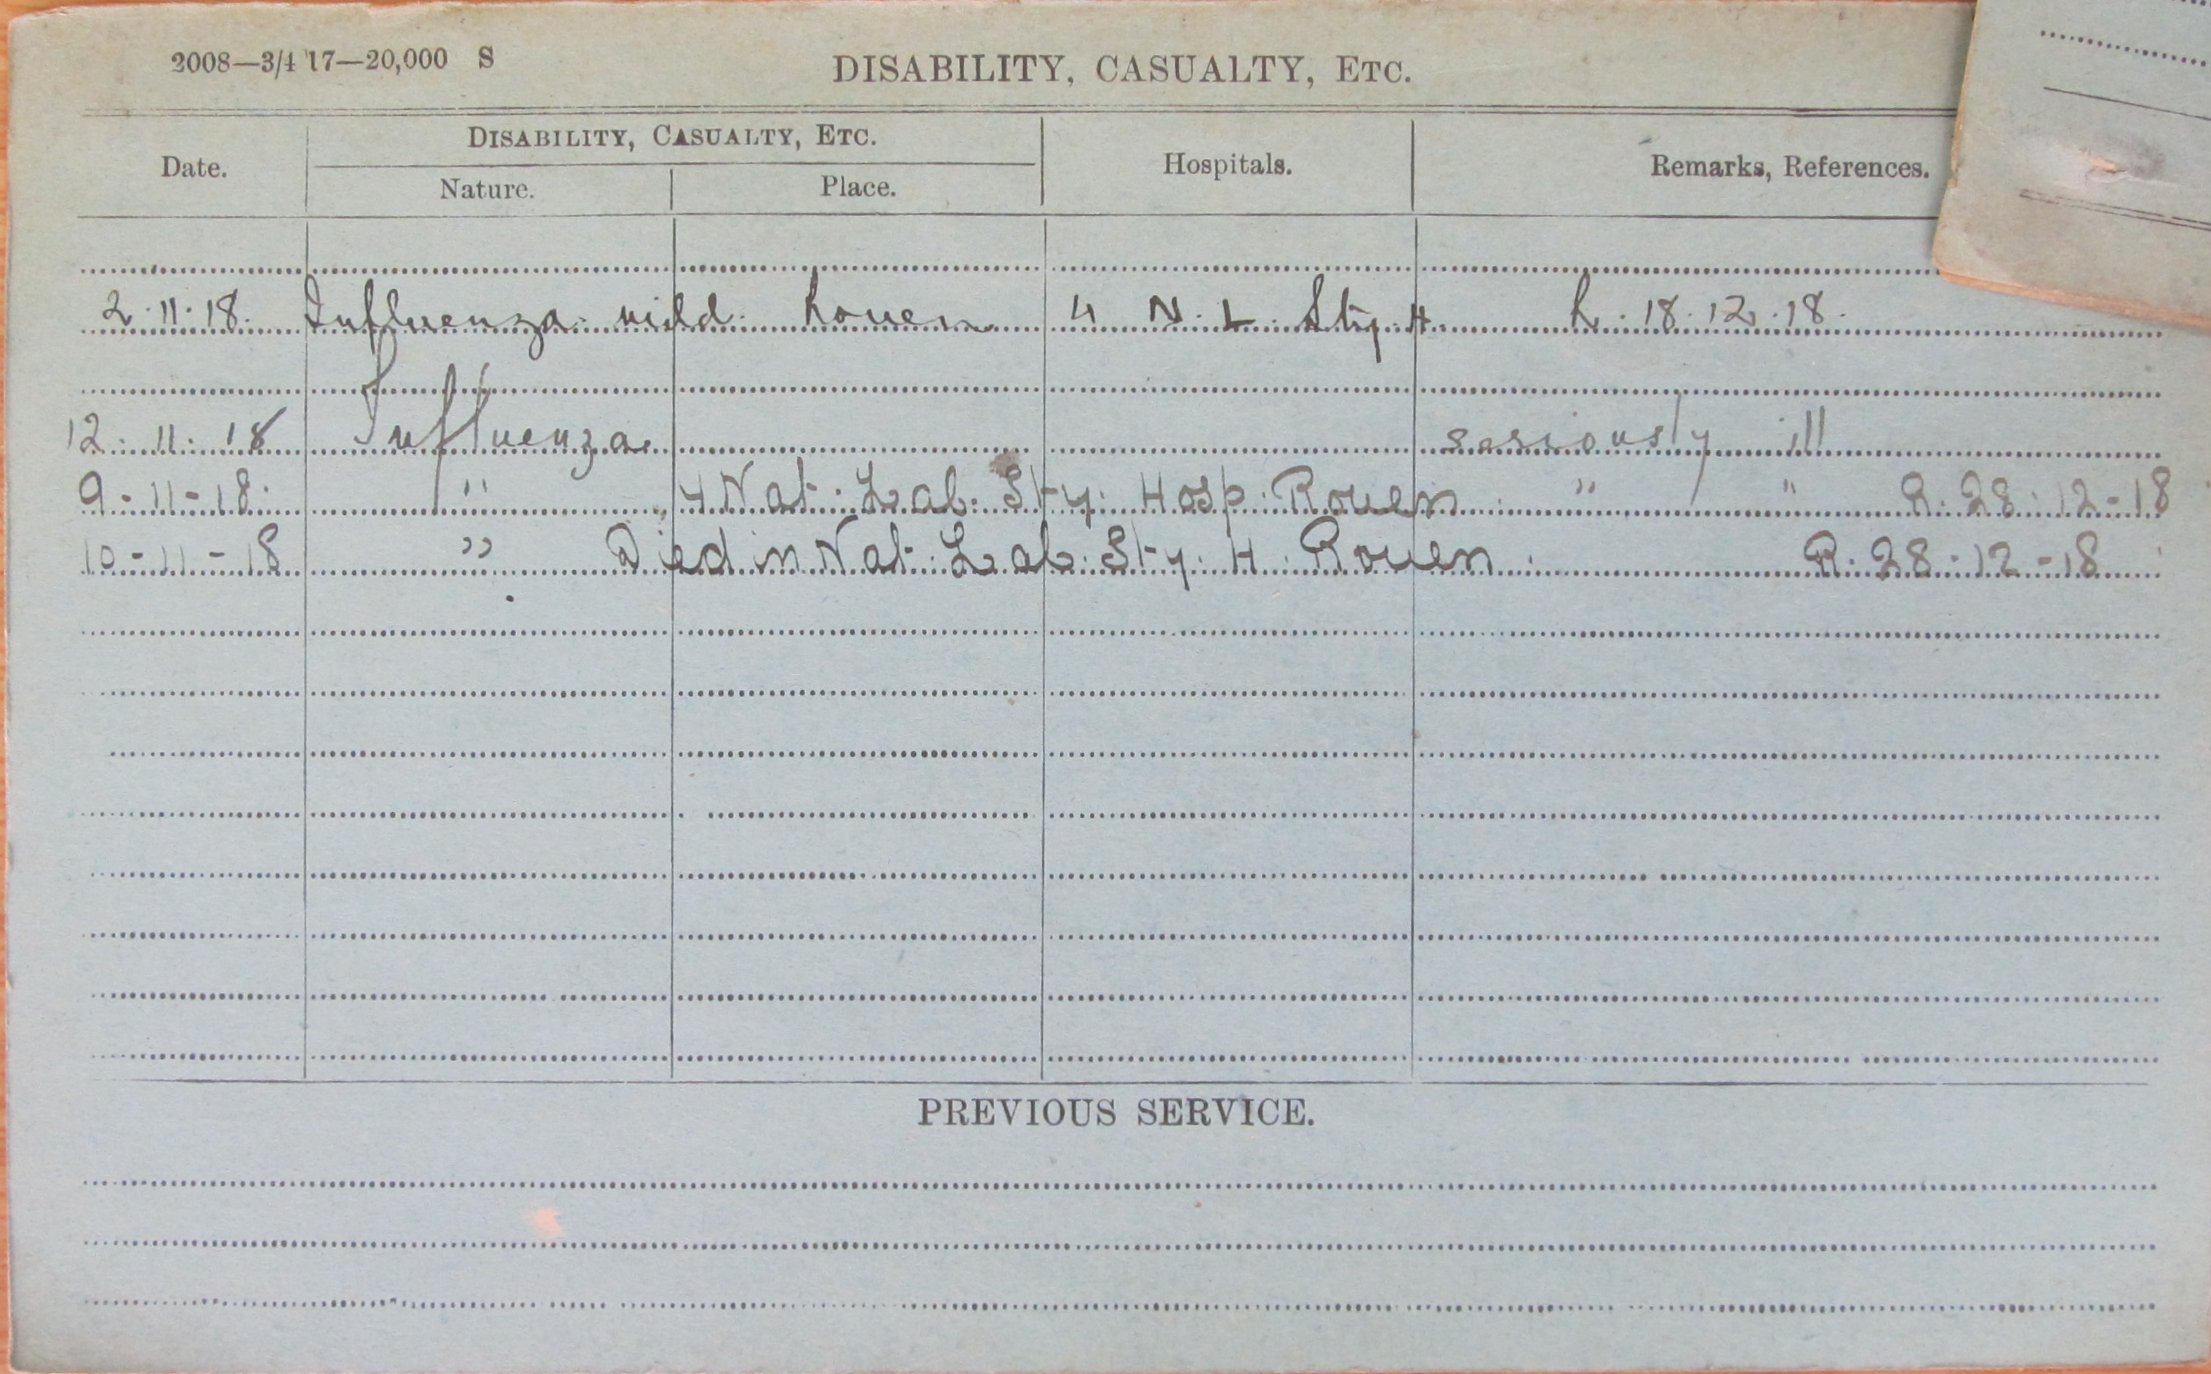 2008—3/4 17—20,000 S DISABILITY, CASUALTY, ETC.
DISABILITY, CASUALTY, ETC.
Date. Hospitals. Remarks, References.
Nature. Place.
2.11.18. Influenza mild. Rouen 4 N. L. Sty H R. 18.12.18.
12.11.18 Influenza seriously ill
9-11-18. " 4 Nat. Lab. Sty. Hosp. Rouen " " R. 28-12-18
10-11-18 " Died in Nat. Lab. Sty. H. Rouen. R. 28-12-18
PREVIOUS SERVICE.